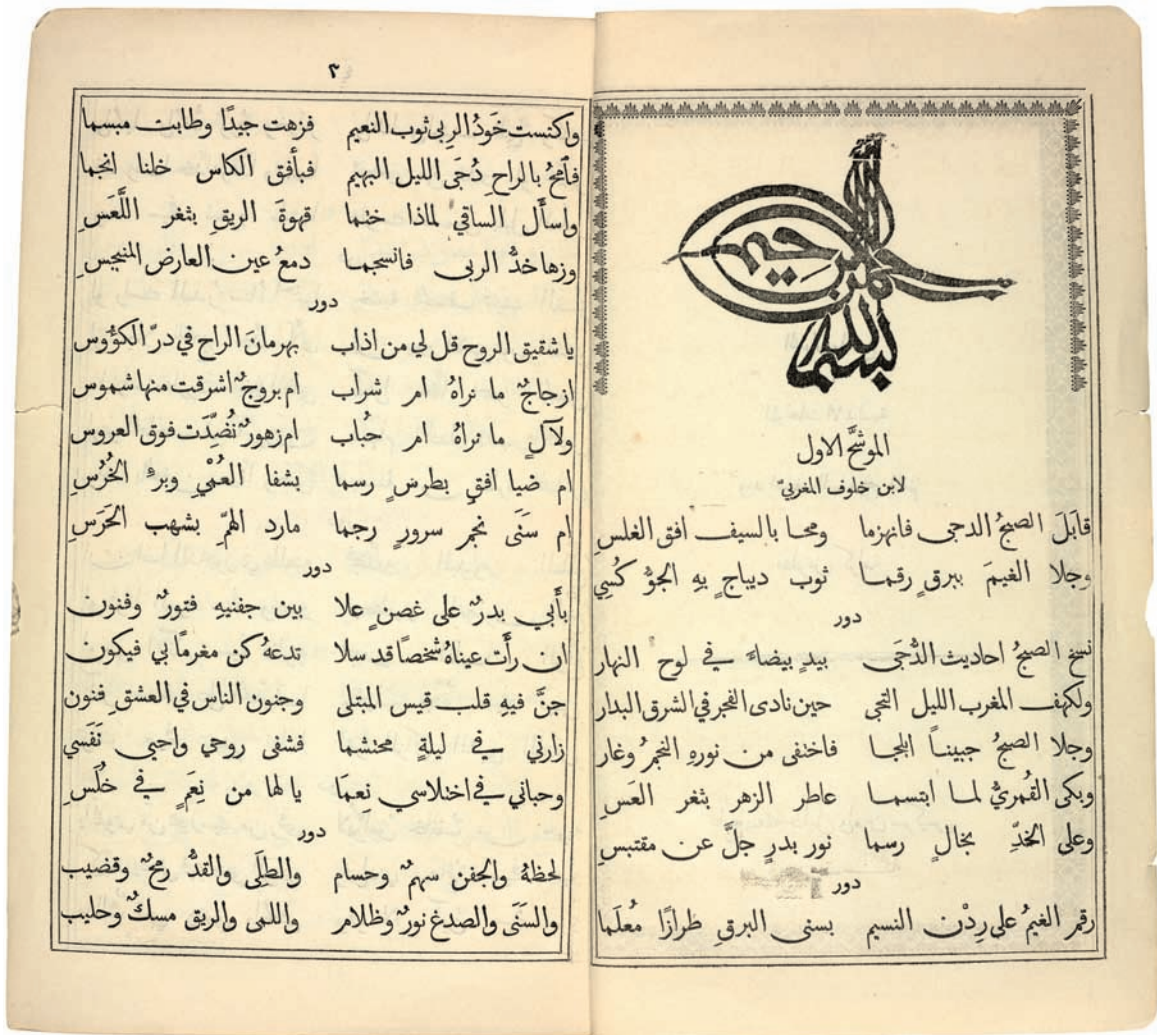 بسم الله الرحمن الرحيم
الموشَّح الاول
لابن خلوف المغربيّ
قابَلَ الصبحُ الدجى فانهزما ومحا بالسيف افق الغلسِ
وجلا الغيمَ ببرقٍ رقما ثوب ديباجٍ بهِ الجوُّ كُسِي
دور
نسخ الصبحُ احاديث الدُّجَى بيدٍ بيضاءَ في لوح النهار
ولكهف المغرب الليل التجى حين نادى الفجر في الشرق البدار
وجلا الصبحُ جبيناً ابلجا فاختفى من نورهِ النجمُ وغار
وبكى القُمريُّ لما ابتسما عاطر الزهر بثغر العَسِ
وعلى الخدِّ بخالٍ رسما نور بدرٍ جلَّ عن مقتبسِ
دور
رقم الغيمُ على رِدْن النسيم بسنى البرقِ طرازًا مُعلَما
٣
واكتست خَودُ الربى ثوب النعيم فزهت جيدًا وطابت مبسما
فاَمحُ بالراحِ دُجَى الليل البهيم فبأفق الكاس خلنا انجما
واسأَل الساقي لماذا ختما قهوةَ الريقِ بثغر اللَّعَسِ
وزها خدُّ الربى فانسجما دمعُ عين العارض المنبجسِ
دور
يا شقيق الروح قل لي من اذاب بهرمانَ الراح في درّ الكؤُوس
ازجاجٌ ما نراهُ ام شراب ام بروجٌ اشرقت منها شموس
ولآلٍ ما نراهُ ام حُباب ام زهورٌ نُضِّدَت فوق العروس
ام ضيا افقٍ بطرسٍ رسما بشفا العُمْيِ وبرءِ الخُرْسِ
ام سَنَى نجمِ سرورٍ رجما مارد الهمِّ بشهب الحَرَسِ
دور
بأَبي بدرٌ على غصنٍ علا بين جفنيهِ فتورٌ وفنون
ان رأَت عيناهُ شخصاً قد سلا تدعهُ كن مغرمًا بي فيكون
جنَّ فيهِ قلب قيس المبتلى وجنون الناس في العشق فنون
زارني في ليلةٍ محتشما فشفى روحي واحيى نَفَسي
وحباني في اختلاسي نِعمَا يا لها من نِعَمٍ في خُلَسِ
دور
لحظهُ والجفن سهمٌ وحسام والطلَى والقدُّ رمحٌ وقضيب
والسنَى والصدغ نورٌ وظلام واللمى والريق مسكٌ وحليب